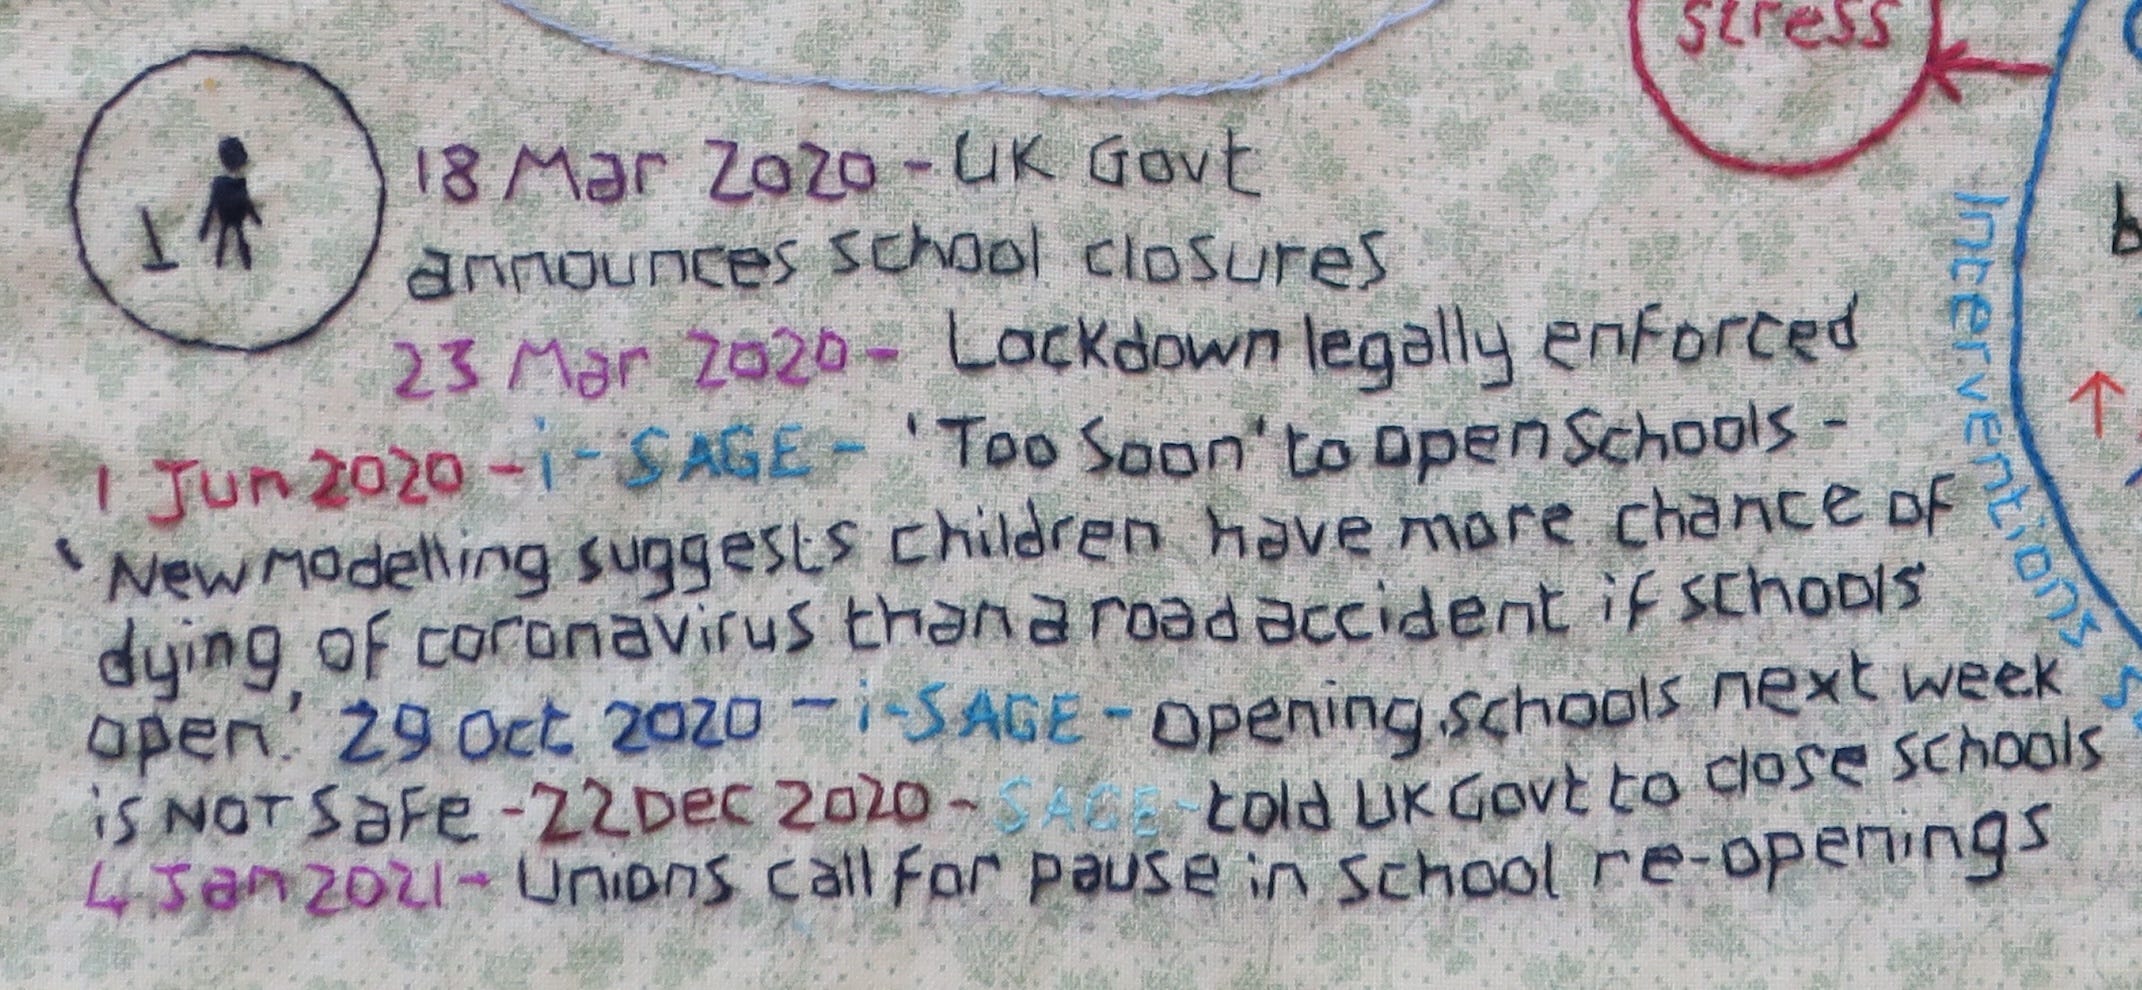 stress
1
18 Mar 2020 - UK Govt
announces school closures
23 Mar 2020 - Lockdown legally enforced
1 Jun 2020 - i-SAGE - 'Too Soon' to open Schools -
'New modelling suggests children have more chance of
dying of coronavirus than a road accident if schools
open.' 29 Oct 2020 - i-SAGE - opening schools next week
is NOT safe - 22 Dec 2020 - SAGE - told UK Govt to close schools
4 Jan 2021 - Unions call for pause in school re-openings
Interventions